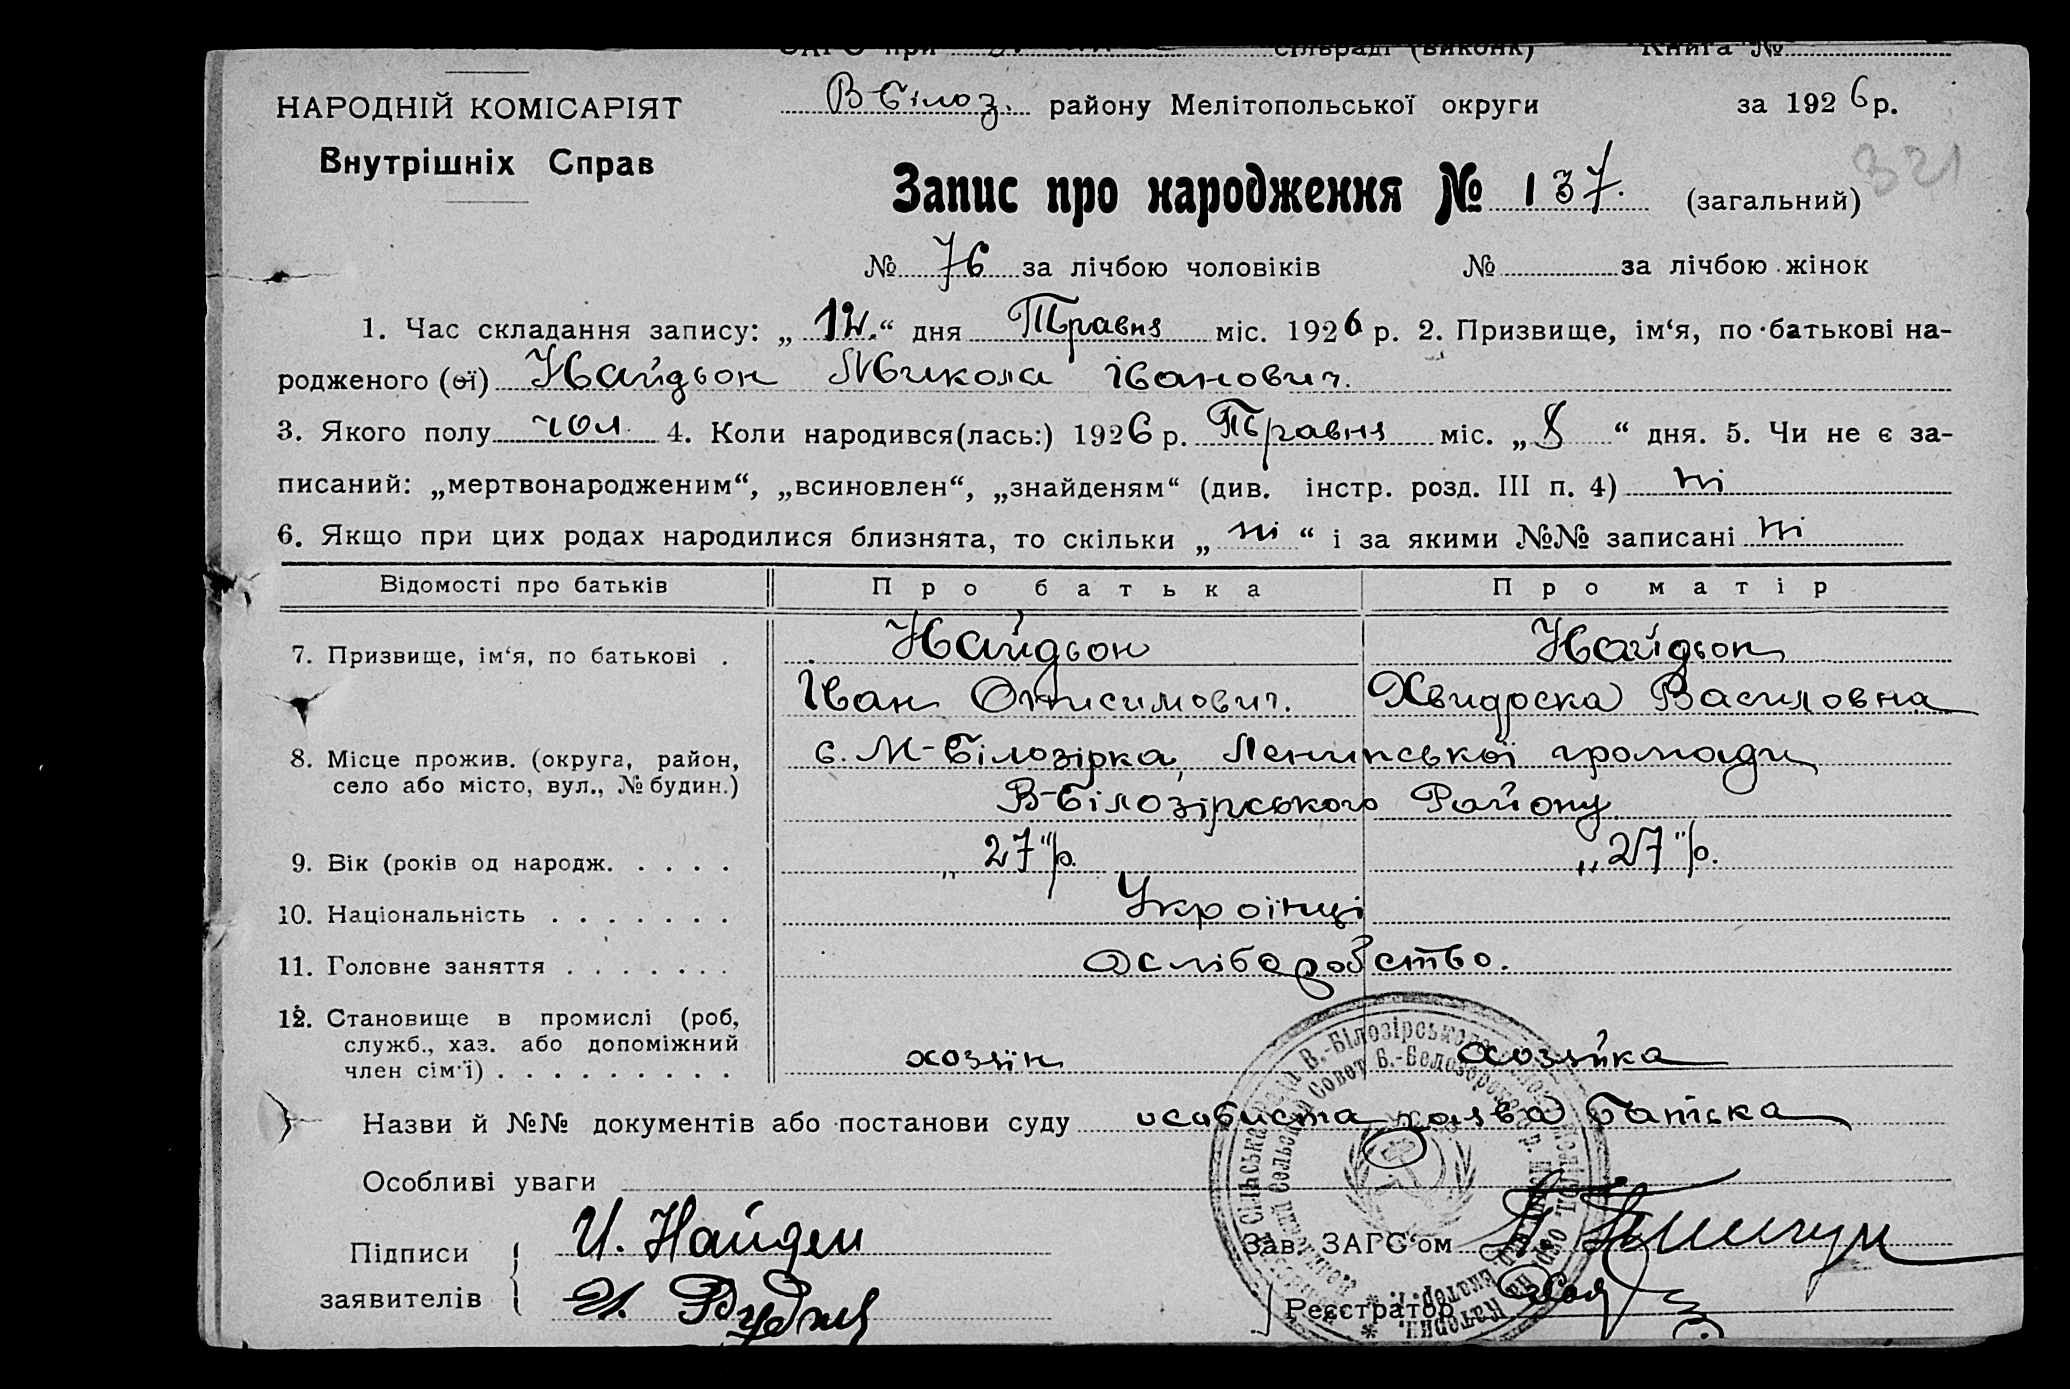 ЗАГС при сільраді (виконк) Книга №
НАРОДНІЙ КОМІСАРІЯТ
Внутрішніх Справ
В Білоз. району Мелітопольської округи за 1926 р.
321
Запис про народження № 137. (загальний)
№ 76 за лічбою чоловіків № за лічбою жінок
1. Час складання запису: „12.“ дня Травня міс. 1926 р. 2. Призвище, ім‘я, по-батькові на-
родженого (ої) Найдьон Микола Іванович.
3. Якого полу чол. 4. Коли народився(лась:) 1926 р. Травня міс. „8“ дня. 5. Чи не є за-
писаний: „мертвонародженим“, „всиновлен“, „знайденям“ (див. інстр. розд. III п. 4) ні
6. Якщо при цих родах народилися близнята, то скільки „ні“ і за якими №№ записані ні
Відомості про батьків Про батька Про матір
7. Призвище, ім‘я, по батькові . Найдьон Найдьон
Іван Онисимович. Хвидоска Василовна
8. Місце прожив. (округа, район, с. М-Білозірка, Ленинської громади
село або місто, вул., № будин.) В-Білозірського Району
9. Вік (років од народж. . . . . „27“ р. „27“ р.
10. Національність . . . . . . . Українці
11. Головне заняття . . . . . . . Хліборобство.
12. Становище в промислі (роб,
служб., хаз. або допоміжний хозяїн хозяйка
член сім‘ї) . . . . . . . . .
Назви й №№ документів або постанови суду особиста заява батька
Особливі уваги
Підписи И. Найден Зав. ЗАГС‘ом
заявителів Реєстратор